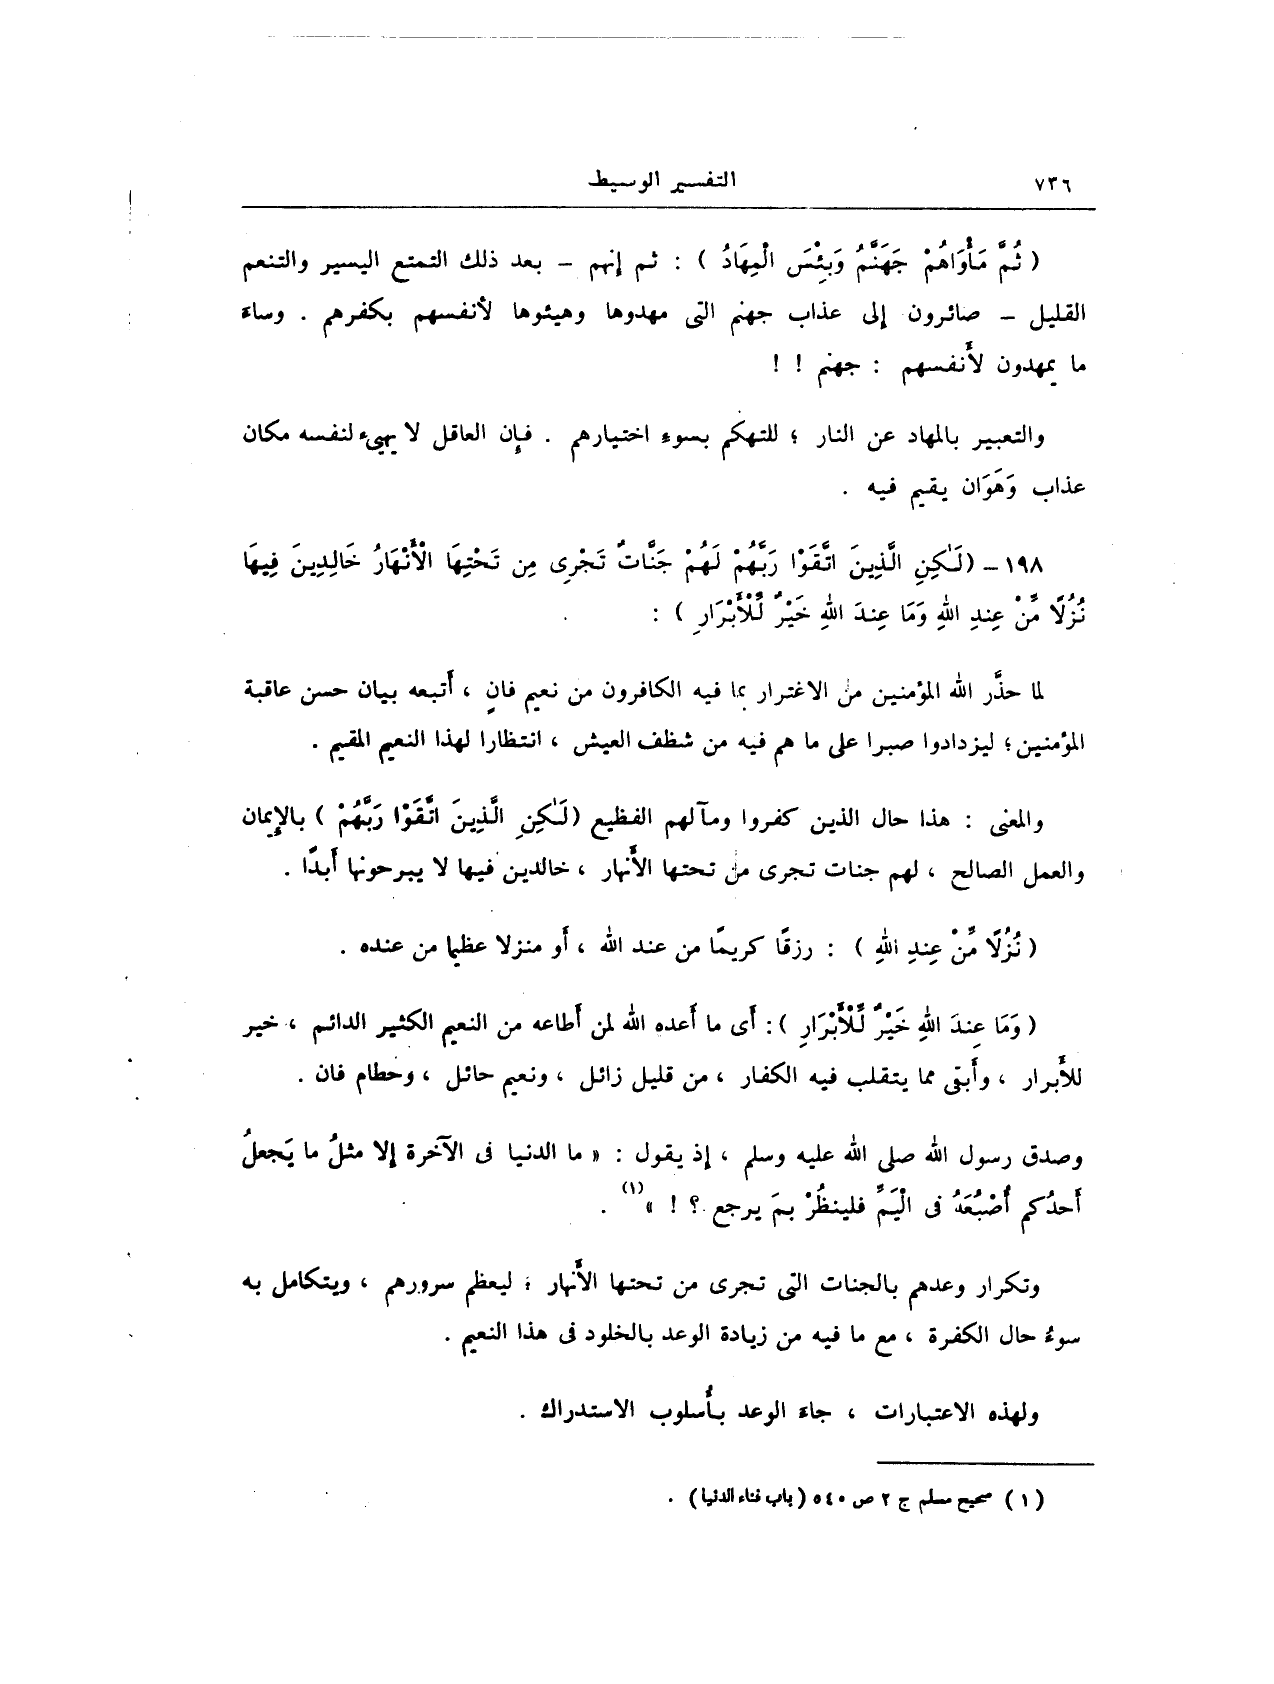 ٧٣٦ التفسير الوسيط
( ثُمَّ مَأْوَاهُمْ جَهَنَّمُ وَبِئْسَ الْمِهَادُ ) : ثم إنهم – بعد ذلك التمتع اليسير والتنعم
القليل – صائرون إلى عذاب جهنم التى مهدوها وهيئوها لأنفسهم بكفرهم . وساءَ
ما يمهدون لأَنفسهم : جهنم ! !
والتعبير بالمهاد عن النار ؛ للتهكم بسوءِ اختيارهم . فإن العاقل لا يهيىء لنفسه مكان
عذاب وَهَوَان يقيم فيه .
١٩٨ – (لَـٰكِنِ الَّذِينَ اتَّقَوْا رَبَّهُمْ لَهُمْ جَنَّاتٌ تَجْرِى مِن تَحْتِهَا الْأَنْهَارُ خَالِدِينَ فِيهَا
نُزُلًا مِّنْ عِندِ اللهِ وَمَا عِندَ اللهِ خَيْرٌ لِّلْأَبْرَارِ ) :
لما حذَّر الله المؤمنين من الاغترار بما فيه الكافرون من نعيم فانٍ ، أَتبعه ببيان حسن عاقبة
المؤمنين؛ ليزدادوا صبرا على ما هم فيه من شظف العيش ، انتظارا لهذا النعيم المقيم .
والمعنى : هذا حال الذين كفروا ومآلهم الفظيع (لَـٰكِنِ الَّذِينَ اتَّقَوْا رَبَّهُمْ ) بالإِيمان
والعمل الصالح ، لهم جنات تجرى من تحتها الأَنهار ، خالدين فيها لا يبرحونها أَبدًا .
( نُزُلًا مِّنْ عِندِ اللهِ ) : رزقًا كريمًا من عند الله ، أَو منزلا عظيما من عنده .
( وَمَا عِندَ اللهِ خَيْرٌ لِّلْأَبْرَارِ ): أَى ما أَعده الله لمن أَطاعه من النعيم الكثير الدائم ، خير
للأَبرار ، وأَبقى مما يتقلب فيه الكفار ، من قليل زائل ، ونعيم حائل ، وحطام فان .
وصدق رسول الله صلى الله عليه وسلم ، إذ يقول : « ما الدنيا فى الآخرة إلا مثلُ ما يَجعلُ
أَحدُكم أُصْبُعَهُ فى الْيَمِّ فلينظُرْ بمَ يرجع ؟ ! »(١) .
وتكرار وعدهم بالجنات التى تجرى من تحتها الأَنهار ؛ ليعظم سرورهم ، ويتكامل به
سوءُ حال الكفرة ، مع ما فيه من زيادة الوعد بالخلود فى هذا النعيم .
ولهذه الاعتبارات ، جاءَ الوعد بأُسلوب الاستدراك .
(١) صحيح مسلم ج ٢ ص ٥٤٠ (باب فناء الدنيا) .